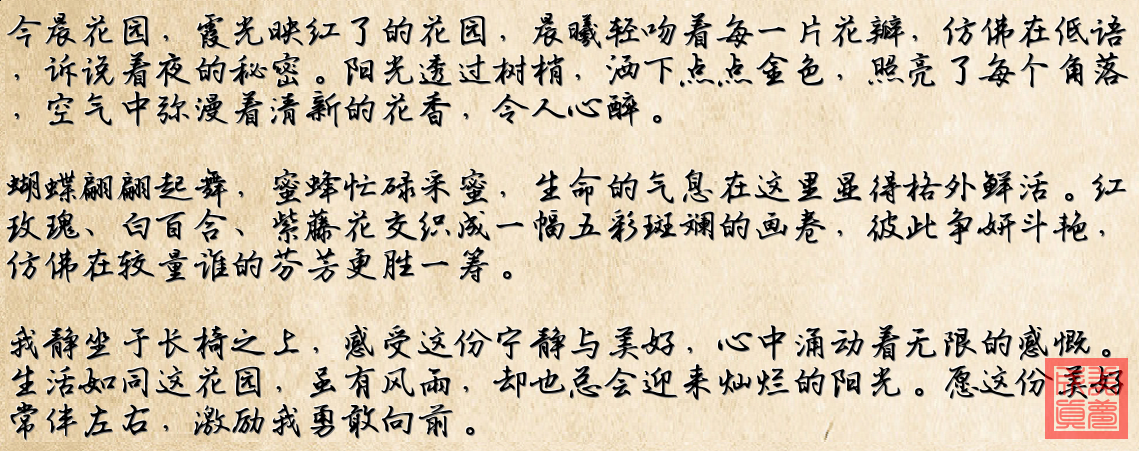 今晨花园，霞光映红了的花园，晨曦轻吻着每一片花瓣，仿佛在低语
，诉说着夜的秘密。阳光透过树梢，洒下点点金色，照亮了每个角落
，空气中弥漫着清新的花香，令人心醉。
蝴蝶翩翩起舞，蜜蜂忙碌采蜜，生命的气息在这里显得格外鲜活。红
玫瑰、白百合、紫藤花交织成一幅五彩斑斓的画卷，彼此争妍斗艳，
仿佛在较量谁的芬芳更胜一筹。
我静坐于长椅之上，感受这份宁静与美好，心中涌动着无限的感慨。
生活如同这花园，虽有风雨，却也总会迎来灿烂的阳光。愿这份美好
常伴左右，激励我勇敢向前。